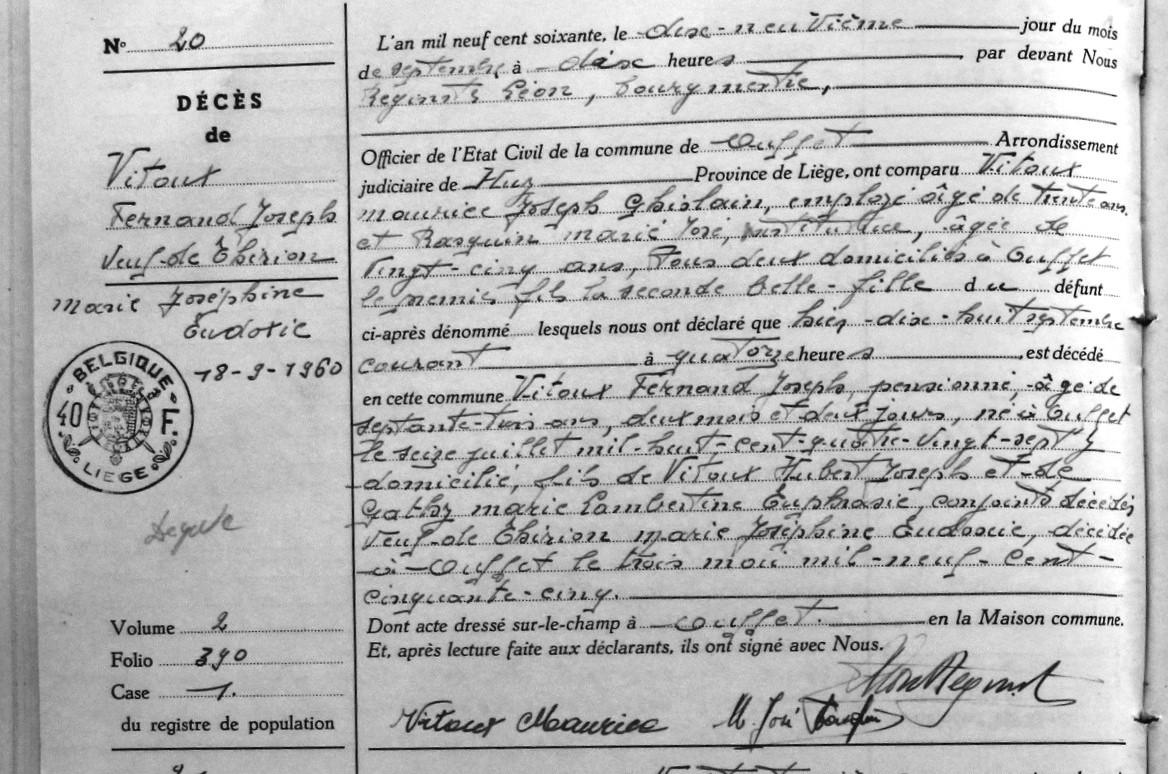 N° 20
DÉCÈS
de
Vitoux
Fernand Joseph
Veuf de Thirion
Marie Joséphine
Eudoxie
18-9-1960
BELGIQUE
40 F.
LIEGE
Volume 2
Folio 390
Case 1.
du registre de population
L'an mil neuf cent soixante, le dix-neuvième jour du mois
de septembre à dix heures par devant Nous
Léon, bourgmestre,
Officier de l'Etat Civil de la commune de Ouffet Arrondissement
judiciaire de Huy Province de Liège, ont comparu Vitoux
Maurice Joseph Ghislain, employé âgé de trente ans
et Rasquin Marie José, institutrice, âgée de
vingt-cinq ans, tous deux domiciliés à Ouffet
le premier fils la seconde belle-fille du défunt
ci-après dénommé lesquels nous ont déclaré que hier dix-huit septembre
courant à quatorze heures, est décédé
en cette commune Vitoux Fernand Joseph, pensionné, âgé de
septante-trois ans, deux mois et deux jours, né à Ouffet
le seize juillet mil-huit-cent-quatre-vingt-sept y
domicilié, fils de Vitoux Hubert Joseph et de
Gathy Marie Lambertine Euphrasie, conjoints décédés
Veuf de Thirion Marie Joséphine Eudoxie, décédée
à Ouffet le trois mai mil-neuf-cent-
cinquante-cinq.
Dont acte dressé sur-le-champ à Ouffet. en la Maison commune.
Et, après lecture faite aux déclarants, ils ont signé avec Nous.
Vitoux Maurice M. José Rasquin